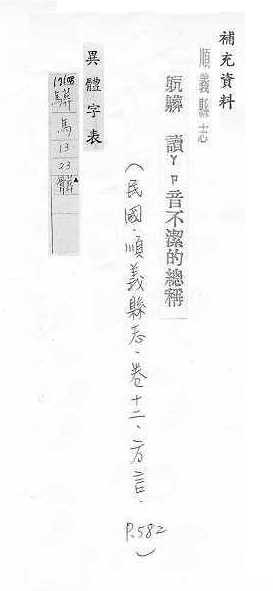 補充資料
順義縣志
骯 讀ㄚㄗ音不潔的總稱
(民國.順義縣志.卷十二、方言.
P.582)
異體字表
馬
13
23